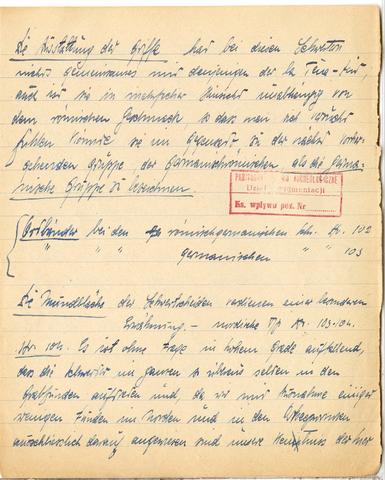 Die Ausstattung der Griffe hat bei diesen Schwerten
nichts gemeinsames mit denjenigen der la Tène-Zeit,
auch ist sie in mehrfacher Hinsicht unabhängig von
dem römischen Geschmack so dass man sich versucht
fühlen könnte sie im Gegensatz zu der nächst vorher-
gehenden Gruppe der Germanisch-römischen als die germa-
nische Gruppe zu bezeichnen.
PAŃSTWOWE MUZEUM ARCHEOLOGICZNE
Dział Dokumentacji
Ks. wpływu poz. Nr
Ortbänder bei den römischgermanischen Nr. 102
" " " germanischen " " 103
Die Mundbleche der Schwertscheiden verdienen einer besonderen
Erwähnung. – nordische Nr. 103-104.
Nr. 104. Es ist ohne Frage in hohem Grade auffallend,
dass die Schwerter im ganzen so überaus selten in den
Grabfunden auftreten und, da wir mit Ausnahme einiger
wenigen Funden im Norden und in den
ausschliesslich darauf angewiesen sind unsere Kenntnis der hier